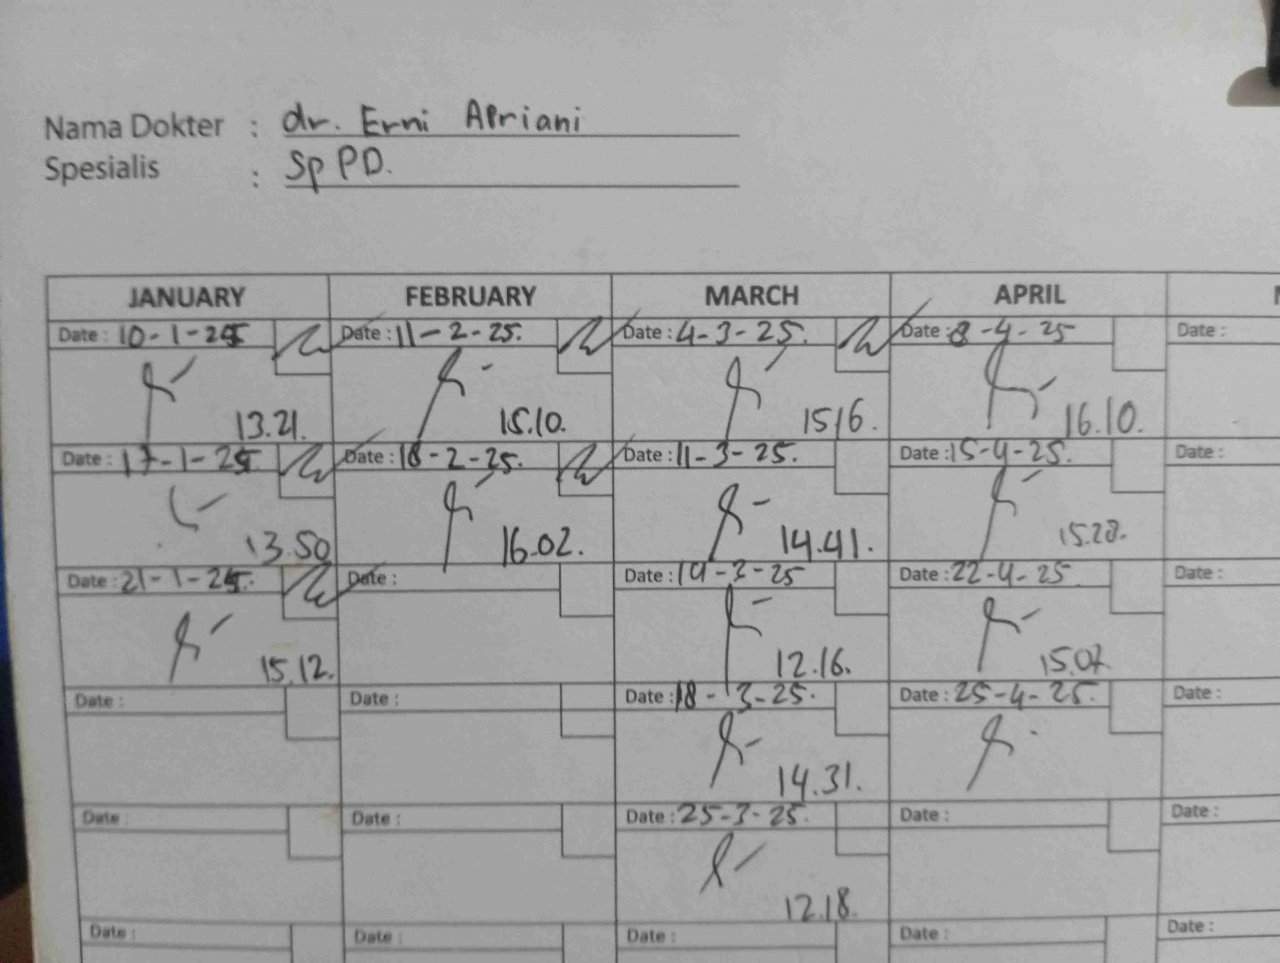 Nama Dokter : dr. Erni Apriani
Spesialis : Sp PD.
JANUARY FEBRUARY MARCH APRIL
Date : 10-1-25 Date : 11-2-25. Date : 4-3-25. Date : 8-4-25 Date :
13.21. 15.10. 1516. 16.10.
Date : 17-1-25 Date : 18-2-25. Date : 11-3-25. Date : 15-4-25. Date :
13.50 16.02. 14.41. 15.28.
Date : 21-1-25. Date : Date : 14-3-25 Date : 22-4-25. Date :
15.12. 12.16. 15.07
Date : Date : Date : 18-3-25. Date : 25-4-25. Date :
14.31.
Date : Date : Date : 25-3-25. Date : Date :
12.18.
Date : Date : Date : Date : Date :